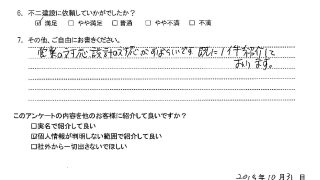 6. 不二建設に依頼していかがでしたか？
☑満足 □やや満足 □普通 □やや不満 □不満
7. その他、ご自由にお書きください。
営業の対応、設計の対応がすばらしいです 既に1件紹介して
おります。
このアンケートの内容を他のお客様に紹介して良いですか？
□実名で紹介して良い
☑個人情報が判明しない範囲で紹介して良い
□社外から一切出さないでほしい
2018年10月31日